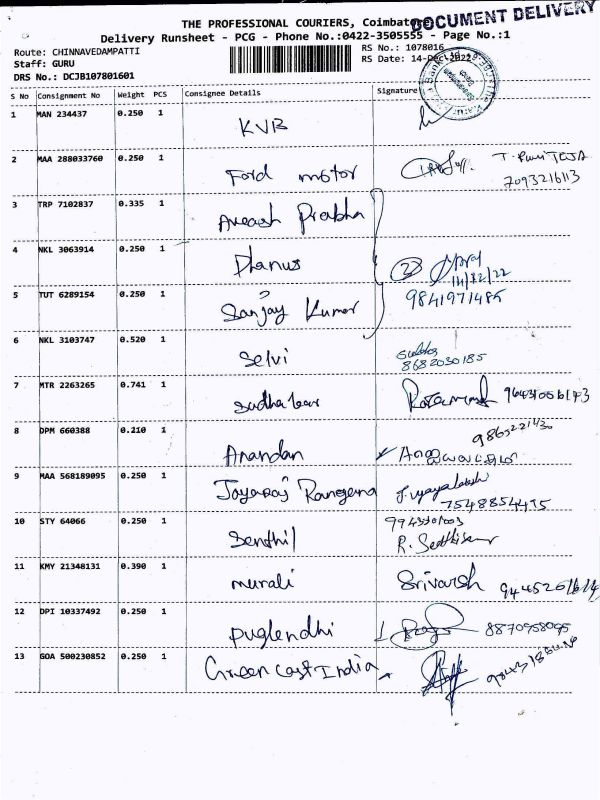 DOCUMENT DELIVERY
THE PROFESSIONAL COURIERS, Coimbatore
Delivery Runsheet - PCG - Phone No.:0422-3505555 - Page No.:1
Route: CHINNAVEDAMPATTI
Staff: GURU
DRS No.: DCJB107801601
RS No.: 1078016
RS Date: 14-Dec-2022
S No Consignment No Weight PCS Consignee Details Signature
1 MAN 234437 0.250 1 KVB
2 MAA 288033760 0.250 1 Ford motor T. Pavi TEJA
7093216113
3 TRP 7102837 0.335 1 Avinash Prabha
4 NKL 3063914 0.250 1 Dhanus 14/12/22
5 TUT 6289154 0.250 1 Sanjay Kumar 9841971485
6 NKL 3103747 0.520 1 Selvi
8682030185
7 MTR 2263265 0.741 1 96431006143
8 DPM 660388 0.210 1 Anandan
9 MAA 568189095 0.250 1 Jayaraj Rangena J. vijayalakshmi
7548854495
10 STY 64066 0.250 1 Senthil
11 KMY 21348131 0.390 1 murali Srivarsh
12 DPI 10337492 0.250 1 Puglendhi 8870958095
13 GOA 500230852 0.250 1 Green cast India